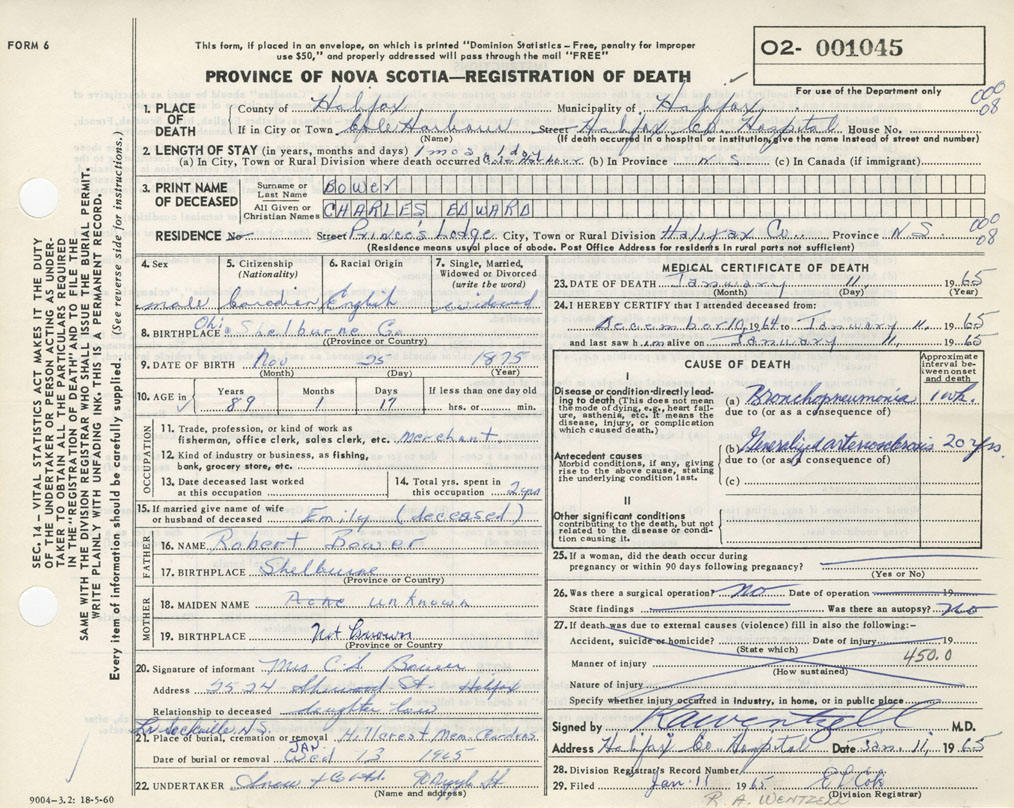 FORM 6
This form, if placed in an envelope, on which is printed "Dominion Statistics – Free, penalty for improper
use $50," and properly addressed will pass through the mail "FREE"
O2- 001045
For use of the Department only
PROVINCE OF NOVA SCOTIA—REGISTRATION OF DEATH
000
08
1. PLACE OF DEATH
County of Halifax Municipality of Halifax
If in City or Town Cole Harbour Street Halifax Co. Hospital House No.
(Name) (If death occurred in a hospital or institution, give the name instead of street and number)
2. LENGTH OF STAY (in years, months and days) 1 mos 1 day
(a) In City, Town or Rural Division where death occurred (b) In Province N S (c) In Canada (if immigrant)
3. PRINT NAME OF DECEASED
Surname or Last Name Bower
All Given or Christian Names CHARLES EDWARD
RESIDENCE No Street Prince's Lodge City, Town or Rural Division Halifax Co. Province N.S.
000
08
(Residence means usual place of abode. Post Office Address for residents in rural parts not sufficient)
4. Sex
male
5. Citizenship
(Nationality)
Canadian
6. Racial Origin
English
7. Single, Married,
Widowed or Divorced
(write the word)
widowed
8. BIRTHPLACE Ohio Shelburne Co
(Province or Country)
9. DATE OF BIRTH Nov 25 1875
(Month) (Day) (Year)
10. AGE in
Years Months Days If less than one day old
89 1 17 hrs. or min.
OCCUPATION
11. Trade, profession, or kind of work as
fisherman, office clerk, sales clerk, etc. merchant
12. Kind of industry or business, as fishing,
bank, grocery store, etc.
13. Date deceased last worked
at this occupation
14. Total yrs. spent in
this occupation
15. If married give name of wife
or husband of deceased Emily (deceased)
FATHER
16. NAME Robert Bower
17. BIRTHPLACE Shelburne
(Province or Country)
MOTHER
18. MAIDEN NAME unknown
19. BIRTHPLACE Not known
(Province or Country
20. Signature of informant Mrs C. S. Bower
Address 2524 Sherwood St. Halifax
Relationship to deceased daughter law
Lr. Sackville, N.S.
21. Place of burial, cremation or removal Hillcrest Mem Gardens
Date of burial or removal Wed JAN 13 1965
22. UNDERTAKER Snow + Co Ltd. Argyle St
(Name and address)
9004-3.2: 18-5-60
MEDICAL CERTIFICATE OF DEATH
23. DATE OF DEATH January 11, 1965
(Month) (Day) (Year)
24. I HEREBY CERTIFY that I attended deceased from:
December 10, 1964 to January 11, 1965
and last saw him alive on January 11, 1965
CAUSE OF DEATH
Approximate
interval be-
tween onset
and death
I
Disease or condition directly lead-
ing to death (This does not mean
the mode of dying, e.g., heart fail-
ure, asthenia, etc. It means the
disease, injury, or complication
which caused death.)
(a) Bronchopneumonia 1 wk.
due to (or as a consequence of)
Antecedent causes
Morbid conditions, if any, giving
rise to the above cause, stating
the underlying condition last.
(b) Generalized arteriosclerosis 20 yrs.
due to (or as a consequence of)
(c)
II
Other significant conditions
contributing to the death, but not
related to the disease or condi-
tion causing it.
25. If a woman, did the death occur during
pregnancy or within 90 days following pregnancy?
(Yes or No)
26. Was there a surgical operation? No Date of operation 19
State findings Was there an autopsy? No
27. If death was due to external causes (violence) fill in also the following:-
Accident, suicide or homicide? Date of injury 19
(State which)
450.0
Manner of injury
(How sustained)
Nature of injury
Specify whether injury occurred in Industry, in home, or in public place
Signed by R A Wentzell M.D.
Address Halifax Co Hospital Date Jan. 11, 1965
28. Division Registrar's Record Number
29. Filed Jan 11 1965
(Division Registrar)
R. A. WENTZELL
SEC. 14 – VITAL STATISTICS ACT MAKES IT THE DUTY
OF THE UNDERTAKER OR PERSON ACTING AS UNDER-
TAKER TO OBTAIN ALL THE PARTICULARS REQUIRED
IN THE "REGISTRATION OF DEATH" AND TO FILE THE
SAME WITH THE DIVISION REGISTRAR WHO SHALL ISSUE THE BURIAL PERMIT.
WRITE PLAINLY WITH UNFADING INK. THIS IS A PERMANENT RECORD.
Every item of information should be carefully supplied. (See reverse side for instructions.)